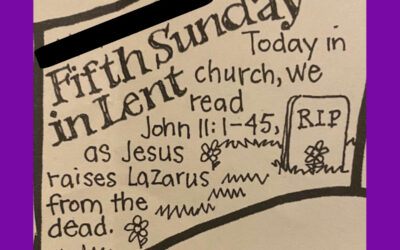 Fifth Sunday
in Lent
Today in
church, we
read
John 11:1-45,
as Jesus
raises Lazarus
from the
dead.
RIP